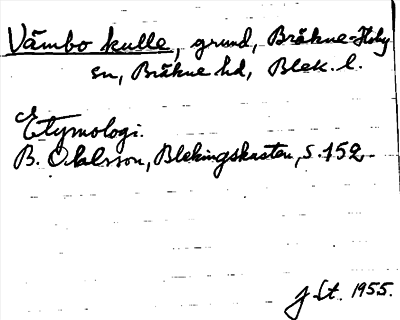 Vämbo kulle, grund, Bräkne-Hoby
sn, Bräkne hd, Blek. l.
Etymologi.
B. Ohlsson, Blekingskusten, s. 152.
1955.